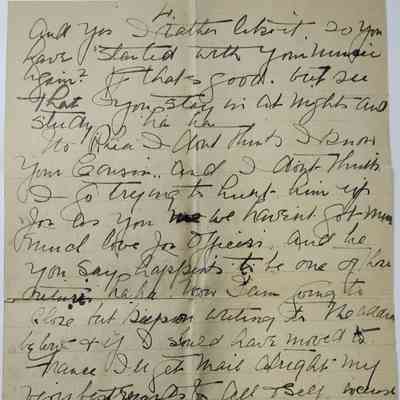 4.
And yes I rather like it. So you
have started with your music
again? If thats good. but see
that you stay in at nights and
study ha ha
No Rhea I dont think I know
your Cousin. and I dont think
I go trying to hunt him up
for as you we havent got
much love for officers and he
you say happens to be one of
ha ha. Now I am going to
close but keep on writing to the address
below & if I should have moved to
France I'll get mail alright my
best regards to all & self